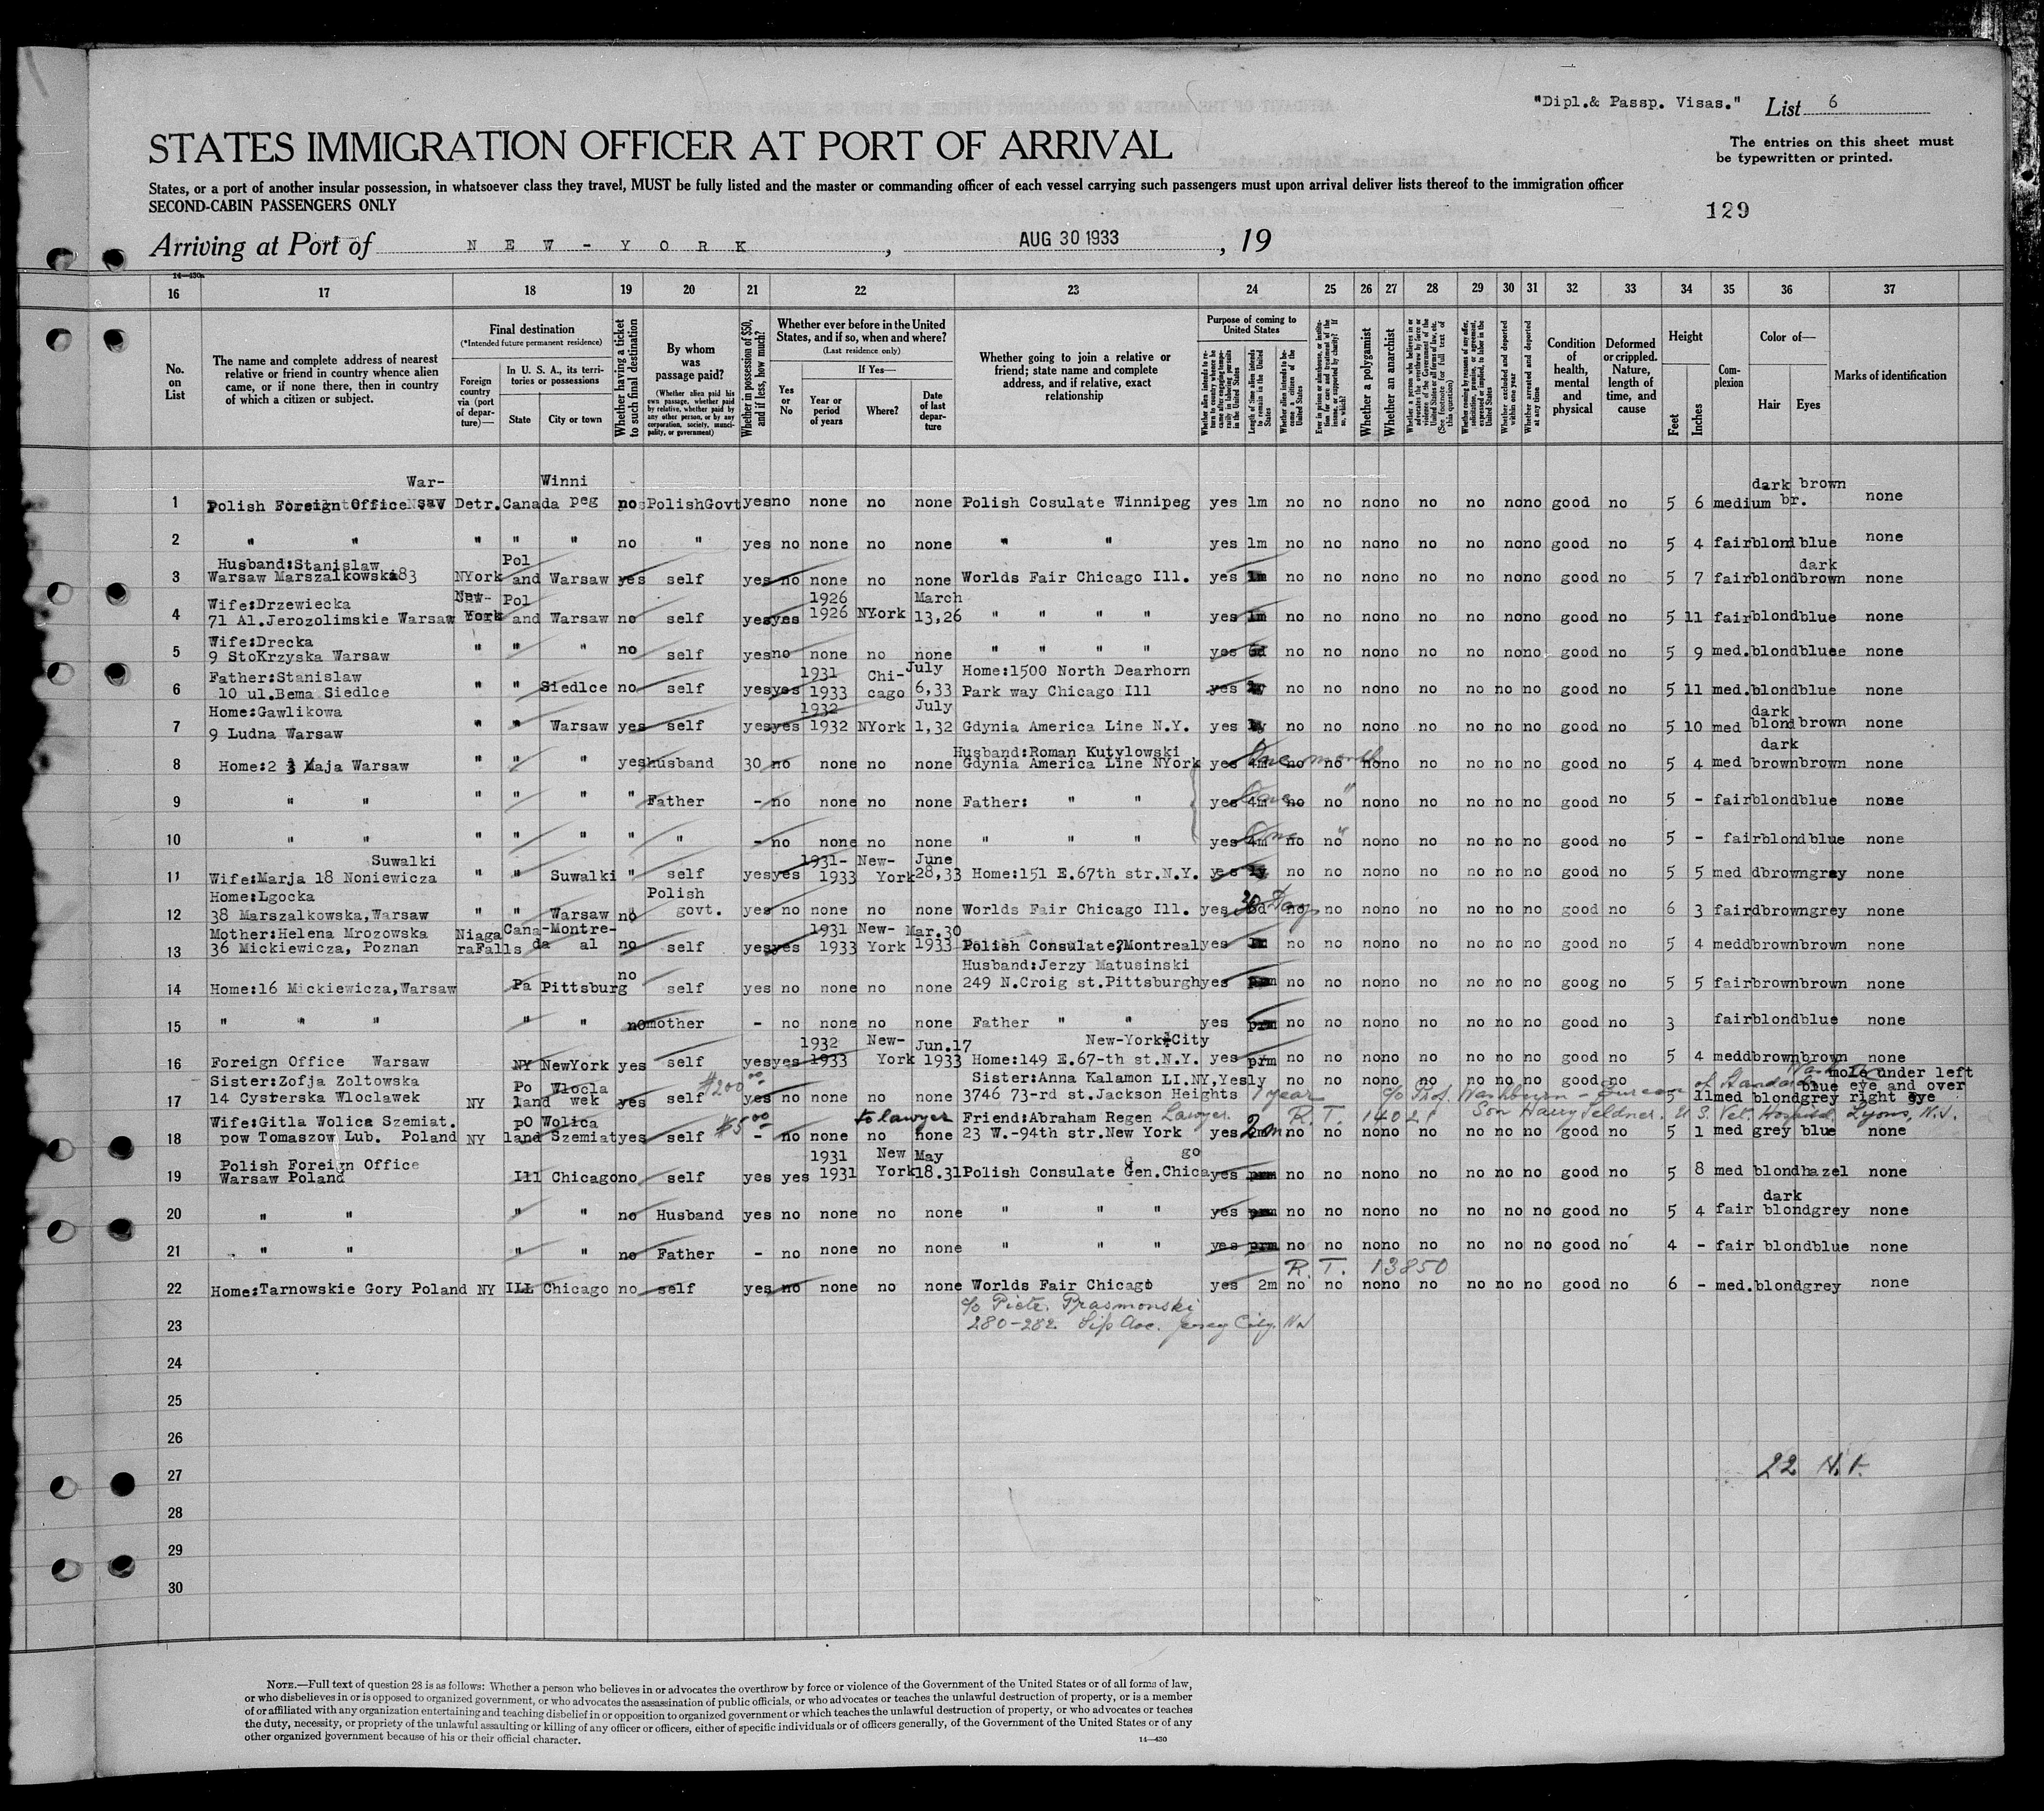 "Dipl.& Passp. Visas." List 6
STATES IMMIGRATION OFFICER AT PORT OF ARRIVAL
The entries on this sheet must
be typewritten or printed.
States, or a port of another insular possession, in whatsoever class they travel, MUST be fully listed and the master or commanding officer of each vessel carrying such passengers must upon arrival deliver lists thereof to the immigration officer
SECOND-CABIN PASSENGERS ONLY
129
Arriving at Port of NEW-YORK, AUG 30 1933, 19
14-430
16 17 18 19 20 21 22 23 24 25 26 27 28 29 30 31 32 33 34 35 36 37
No. on List
The name and complete address of nearest relative or friend in country whence alien came, or if none there, then in country of which a citizen or subject.
Final destination
(*Intended future permanent residence)
Foreign country via (port of departure)—
In U. S. A., its territories or possessions
State City or town
Whether having a ticket to such final destination
By whom was passage paid?
(Whether alien paid his own passage, whether paid by relative, whether paid by any other person, or by any corporation, society, municipality, or government)
Whether in possession of $50, and if less, how much?
Whether ever before in the United States, and if so, when and where?
(Last residence only)
Yes or No
If Yes—
Year or period of years Where? Date of last departure
Whether going to join a relative or friend; state name and complete address, and if relative, exact relationship
Purpose of coming to United States
Whether alien intends to return to country whence he came after engaging temporarily in laboring pursuits in the United States
Length of time alien intends to remain in the United States
Whether alien intends to become a citizen of the United States
Ever in prison or almshouse, or institution for care and treatment of the insane, or supported by charity? If so, which?
Whether a polygamist
Whether an anarchist
Whether a person who believes in or advocates the overthrow by force or violence of the Government of the United States or all forms of law, etc. (See footnote for full text of this question)
Whether coming by reason of any offer, solicitation, promise, or agreement, expressed or implied, to labor in the United States
Whether excluded and deported within one year
Whether arrested and deported at any time
Condition of health, mental and physical
Deformed or crippled. Nature, length of time, and cause
Height
Feet Inches
Complexion
Color of—
Hair Eyes
Marks of identification
1 Polish Foreign Office War-saw Detr. Canada Winnipeg no PolishGovt yes no none no none Polish Cosulate Winnipeg yes 1m no no no no no no no no good no 5 6 medium dark br. brown none
2 " " " " " no " yes no none no none " " yes 1m no no no no no no no no good no 5 4 fair blond blue none
3 Husband:Stanislaw
Warsaw Marszalkowska183 NYork Poland Warsaw yes self yes no none no none Worlds Fair Chicago Ill. yes 1m no no no no no no no no good no 5 7 fair blond dark brown none
4 Wife:Drzewiecka
71 Al.Jerozolimskie Warsaw New-York Poland Warsaw no self yes yes 1926 1926 NYork March 13,26 " " " " yes 1m no no no no no no no no good no 5 11 fair blond blue none
5 Wife:Drecka
9 StoKrzyska Warsaw " " " no self yes no none no none " " " " yes no no no no no no no no good no 5 9 med. blond bluee none
6 Father:Stanislaw
10 ul.Bema Siedlce " " Siedlce no self yes yes 1931 1933 Chi-cago July 6,33 Home:1500 North Dearhorn
Park way Chicago Ill yes no no no no no no no no good no 5 11 med. blond blue none
7 Home:Gawlikowa
9 Ludna Warsaw " " Warsaw yes self yes yes 1932 1932 NYork July 1,32 Gdynia America Line N.Y. yes no no no no no no no no good no 5 10 med dark blond brown none
8 Home:2 3 Maja Warsaw " " " yes husband 30 no none no none Husband:Roman Kutylowski
Gdynia America Line NYork yes 4m One month no no no no no no no no good no 5 4 med dark brown brown none
9 " " " " " " Father - no none no none Father: " " yes 4m One " no no no no no no no no good no 5 - fair blond blue none
10 " " " " " " " - no none no none " " " yes 4m One " no no no no no no no no good no 5 - fair blond blue none
11 Suwalki
Wife:Marja 18 Noniewicza " " Suwalki " self yes yes 1931-1933 New-York June 28,33 Home:151 E.67th str.N.Y. yes 1y no no no no no no no no good no 5 5 med dbrown grey none
12 Home:Lgocka
38 Marszalkowska,Warsaw " " Warsaw no Polish govt. yes no none no none Worlds Fair Chicago Ill. yes 30 Days no no no no no no no no good no 6 3 fair dbrown grey none
13 Mother:Helena Mrozowska
36 Mickiewicza, Poznan NiagaraFalls Canada -Montreal no self yes yes 1931 1933 New-York Mar.30 1933 Polish Consulate,Montreal yes no no no no no no no no good no 5 4 med dbrown brown none
14 Home:16 Mickiewicza,Warsaw Pa Pittsburg no self yes no none no none Husband:Jerzy Matusinski
249 N.Croig st.Pittsburgh yes prm no no no no no no no no goog no 5 5 fair brown brown none
15 " " " " " no mother - no none no none Father " " yes prm no no no no no no no no good no 3 fair blond blue none
16 Foreign Office Warsaw NY NewYork yes self yes yes 1932 1933 New-York Jun.17 1933 New-York City
Home:149 E.67-th st.N.Y. yes prm no no no no no no no no good no 5 4 med dbrown brown none
17 Sister:Zofja Zoltowska
14 Cysterska Wloclawek NY Poland Wloclawek yes self $200.00 yes no none no none Sister:Anna Kalamon LI.NY,
3746 73-rd st.Jackson Heights Yes 1y 1 year no no no no no no no no good no 5 11 med blond grey mole under left
blue eye and over
right eye
c/o Prof. Washburn - Bureau of Standards, Wash
18 Wife:Gitla Wolica Szemiat.
pow Tomaszow Lub. Poland NY Poland Wolica Szemiat yes self $5.00 - no none no none to lawyer Friend:Abraham Regen Lawyer.
23 W.-94th str.New York yes 2m no no no no no no no no good no 5 1 med grey blue none
R.T. 14021 Son Harry Feldner. U.S. Vet. Hospital, Lyons, N.J.
19 Polish Foreign Office
Warsaw Poland Ill Chicago no self yes yes 1931 1931 New York May 18.31 Polish Consulate Gen.Chicago yes prm no no no no no no no no good no 5 8 med blond hazel none
20 " " " " no Husband yes no none no none " " " yes prm no no no no no no no no good no 5 4 fair dark blond grey none
21 " " " " no Father - no none no none " " " yes prm no no no no no no no no good no 4 - fair blond blue none
R.T. 13850
22 Home:Tarnowskie Gory Poland NY ILL Chicago no self yes no none no none Worlds Fair Chicago yes 2m no no no no no no no no good no 6 - med. blond grey none
c/o Piotr. Prasmonski
23 280-282 Sip Ave. Jersey City. NJ
24
25
26
27 22
28
29
30
NOTE.—Full text of question 28 is as follows: Whether a person who believes in or advocates the overthrow by force or violence of the Government of the United States or of all forms of law,
or who disbelieves in or is opposed to organized government, or who advocates the assassination of public officials, or who advocates or teaches the unlawful destruction of property, or is a member
of or affiliated with any organization entertaining and teaching disbelief in or opposition to organized government or which teaches the unlawful destruction of property, or who advocates or teaches
the duty, necessity, or propriety of the unlawful assaulting or killing of any officer or officers, either of specific individuals or of officers generally, of the Government of the United States or of any
other organized government because of his or their official character.
14-430